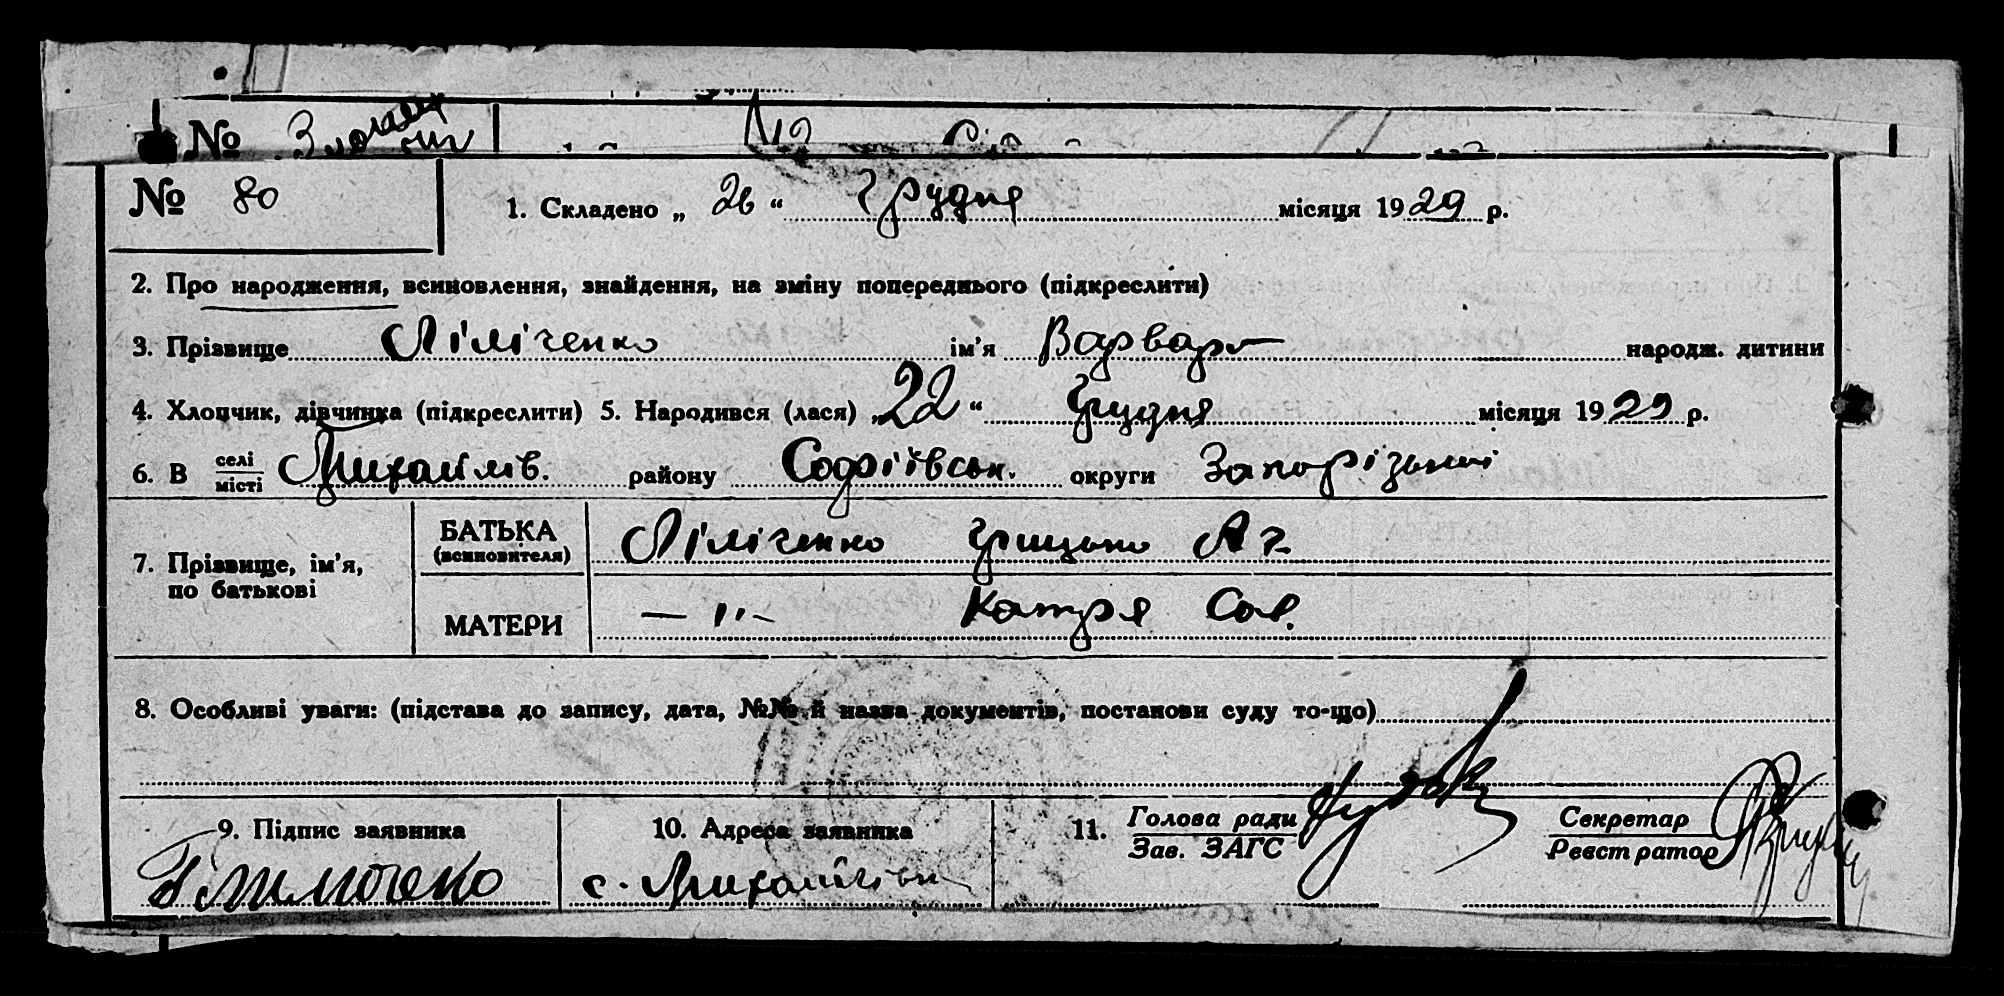 №
№ 80 1. Складено „ 26 “ Грудня місяця 1929 р.
2. Про народження, всиновлення, знайдення, на зміну попереднього (підкреслити)
3. Прізвище Ліліченко ім’я Варвара народж. дитини
4. Хлопчик, дівчинка (підкреслити) 5. Народився (лася) „22“ Грудня місяця 1929 р.
6. В селі Михайлів. району Софіївськ. округи Запорізької
місті
7. Прізвище, ім’я, по батькові
БАТЬКА (всиновителя) Ліліченко Грицько
МАТЕРИ — „ — Катря Сав.
8. Особливі уваги: (підстава до запису, дата, №№ й назва документів, постанови суду то-що)
9. Підпис заявника 10. Адреса заявника 11. Голова ради Секретар
Зав. ЗАГС Реєстратор
с. Михайлівка